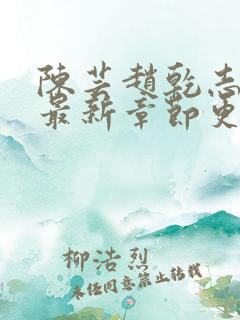 陳芸趙乾志
最新章節更
柳浩烈
未经同意禁止转载